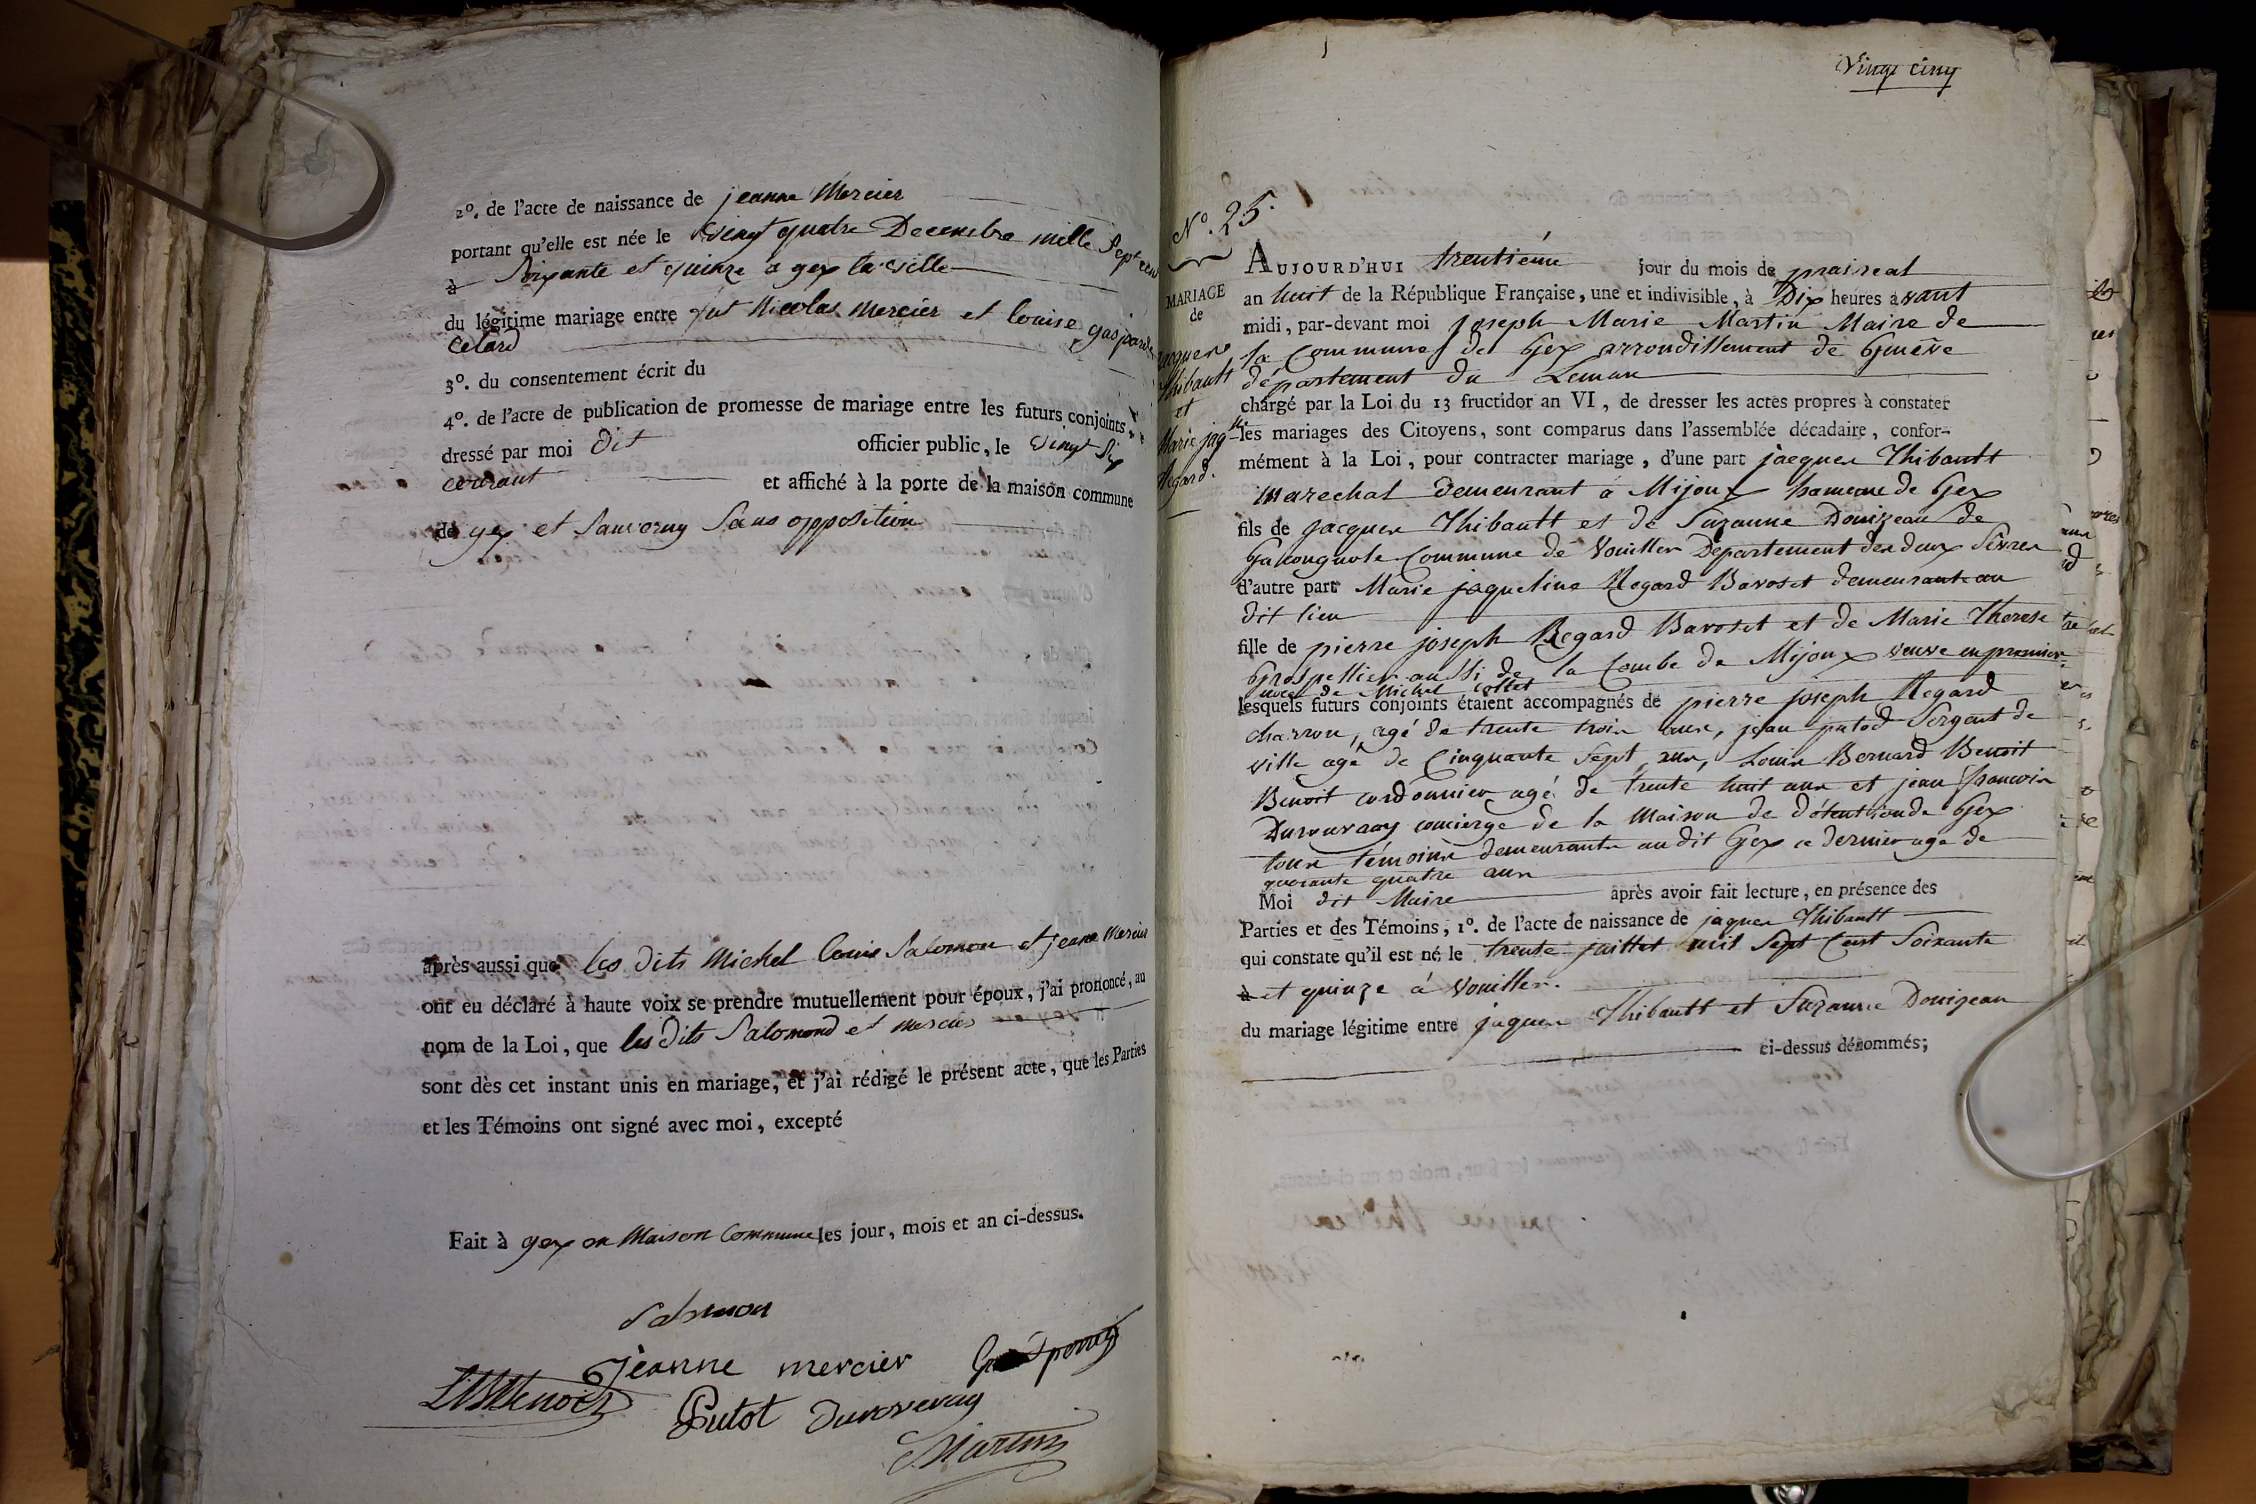 2º. de l'acte de naissance de jeanne Mercier
portant qu'elle est née le vingt quatre Decembre mille Sept cent
à Soixante et quinze a gex la ville
du légitime mariage entre fut Nicolas Mercier et louise gasparde
Celard
3º. du consentement écrit du
4º. de l'acte de publication de promesse de mariage entre les futurs conjoints
dressé par moi dit officier public, le vingt Six
courant et affiché à la porte de la maison commune
de gex et Sauverny Sans opposition
après aussi que les dits Michel Louis Salomon et jeanne Mercier
ont eu déclaré à haute voix se prendre mutuellement pour époux, j'ai prononcé, au
nom de la Loi, que les dits Salomond et Mercier
sont dès cet instant unis en mariage, et j'ai rédigé le présent acte, que les Parties
et les Témoins ont signé avec moi, excepté
Fait à gex en Maison Commune les jour, mois et an ci-dessus.
Salomon
Jèanne mercier
Putot Duroveray
Martin
Vingt cinq
Nº. 25.
MARIAGE
de
jacques
Thibault
et
Marie jaq.ne
Regard.
AUJOURD'HUI trentiéme jour du mois de praireal
an huit de la République Française, une et indivisible, à Dix heures avant
midi, par-devant moi Joseph Marie Martin Maire de
la Commune de Gex arrondissement de Genève
département du Leman
chargé par la Loi du 13 fructidor an VI, de dresser les actes propres à constater
les mariages des Citoyens, sont comparus dans l'assemblée décadaire, confor-
mément à la Loi, pour contracter mariage, d'une part jacques Thibault
Marechal demeurant a Mijoux hameau de Gex
fils de jacques Thibault et de Suzanne Douizeau de
Gacougnole Commune de Vouilles Département des deux Sèvres
d'autre part Marie jaqueline Regard Bavoset demeurante au
dit lieu
fille de pierre joseph Regard Bavoset et de Marie Therese
Grospellier aussi de la Combe de Mijoux veuve en premier
noces de Michel Collet
lesquels futurs conjoints étaient accompagnés de pierre joseph Regard
charron, agé de trente trois ans, jean putod Sergent de
ville agé de Cinquante Sept ans, Louis Bernard Benoit
Benoit cordonnier agé de trente huit ans et jean françois
Duroveray concierge de la Maison de détention de Gex
tous témoins demeurants au dit Gex ce dernier age de
quarante quatre ans
Moi dit Maire après avoir fait lecture, en présence des
Parties et des Témoins, 1º. de l'acte de naissance de jaques Thibault
qui constate qu'il est né le trente juillet mil Sept Cent Soixante
à et quinze à Vouilles.
du mariage légitime entre jaques Thibault et Suzanne Douizeau
ci-dessus dénommés;